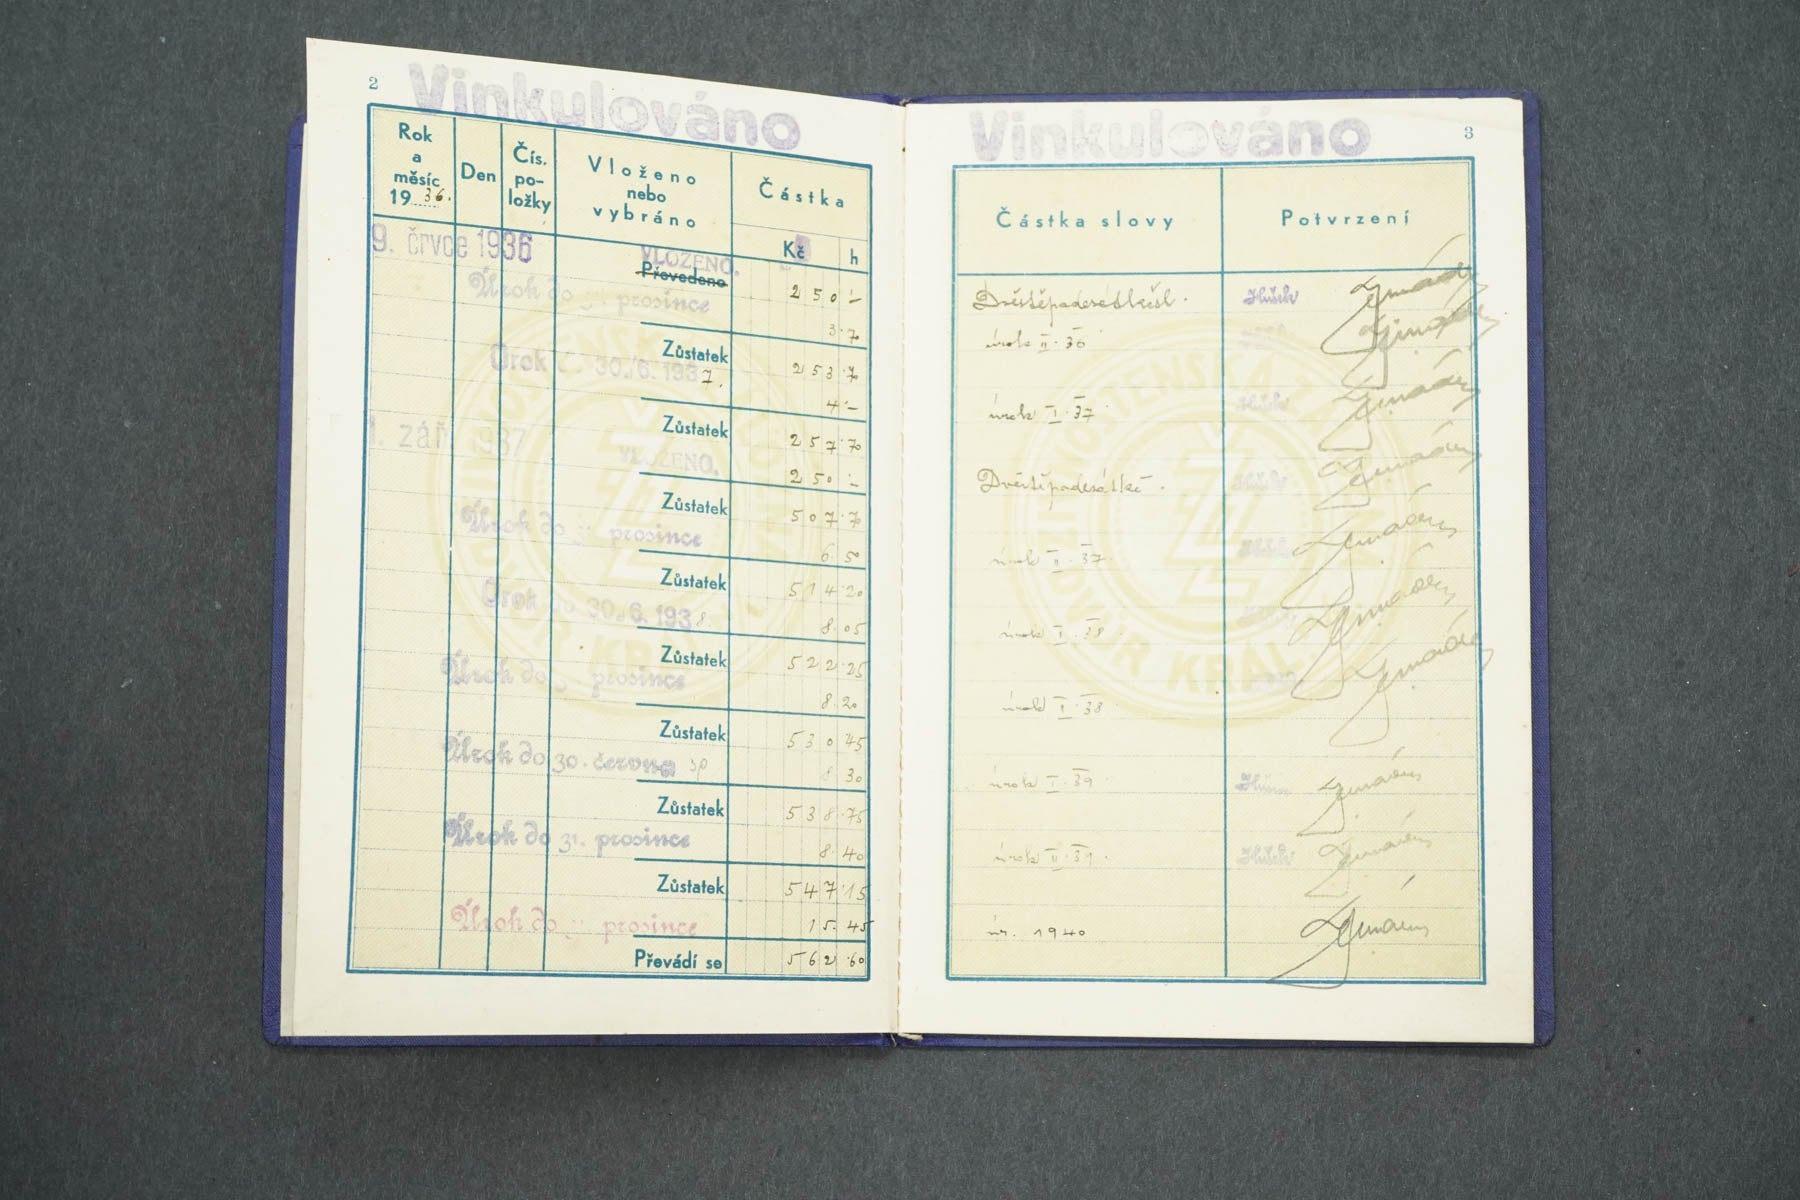 2
Vinkulováno
Rok a měsíc 1936.
Den
Čís. po-ložky
Vloženo nebo vybráno
Částka
Kč h
9. črvce 1936 VLOŽENO.
Převedeno 250 –
Úrok do prosince 3·70
Zůstatek 253·70
Úrok 30./6. 1937. 4·–
Zůstatek 257·70
1. zář. 1937 VLOŽENO. 250 –
Zůstatek 507·70
Úrok do prosince 6·50
Zůstatek 514·20
Úrok do 30./6. 1938 8·05
Zůstatek 522·25
Úrok do prosince 8·20
Zůstatek 530·45
Úrok do 30. června 39 8 30
Zůstatek 538·75
Úrok do 31. prosince 8·40
Zůstatek 547·15
Úrok do prosince 15·45
Převádí se 562·60
ŽIVNOSTENSKÁ
DVŮR KRÁL
Vinkulováno
3
Částka slovy
Potvrzení
úrok II·36
úrok I·37
Dvěstěpadesátkč.
úrok II·37
úrok I·38
úrok I·38
úrok I·39
úrok II·39
úr. 1940
ŽIVNOSTENSKÁ
DVŮR KRÁL